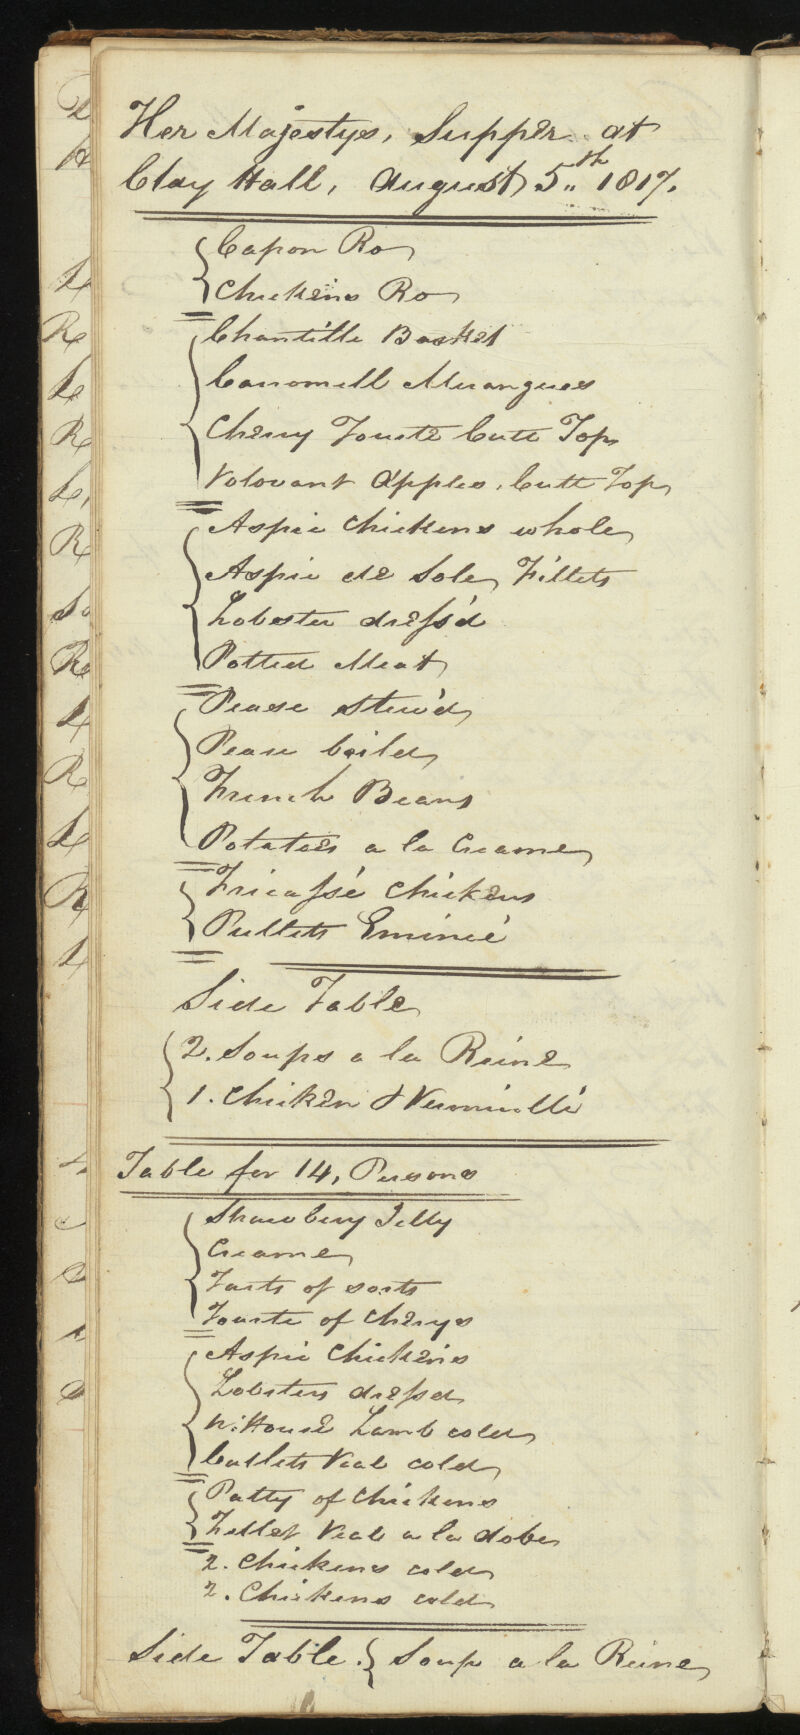 Her Majestys, Supper at
Clay Hall, August 5th 1817.
Capon Ro
Chickens Ro
Chantille Basket
Carromell Murangues
Cherry Tourte Cutt Top
Volovant Apples, Cutt Top
Aspic Chickens whole
Aspic de Sole, Fillets
Lobster dress'd
Potted Meat
Pease Stew'd
Pease boild
French Beans
Potatoes a la Creame
Fricassé Chickens
Pullets Emincé
Side Table
2. Soups a la Reine
1. Chicken & Vermicelli
Table for 14, Persons
Strawbery Jelly
Creame
Tarts of sorts
Tourte of Cherys
Aspic Chickens
Lobsters dressd
H: House Lamb cold
Cutlets Veal cold
Patty of Chickens
Fillet Veal a la dobe
2. Chickens cold
2. Chickens cold
Side Table. Soup a la Reine